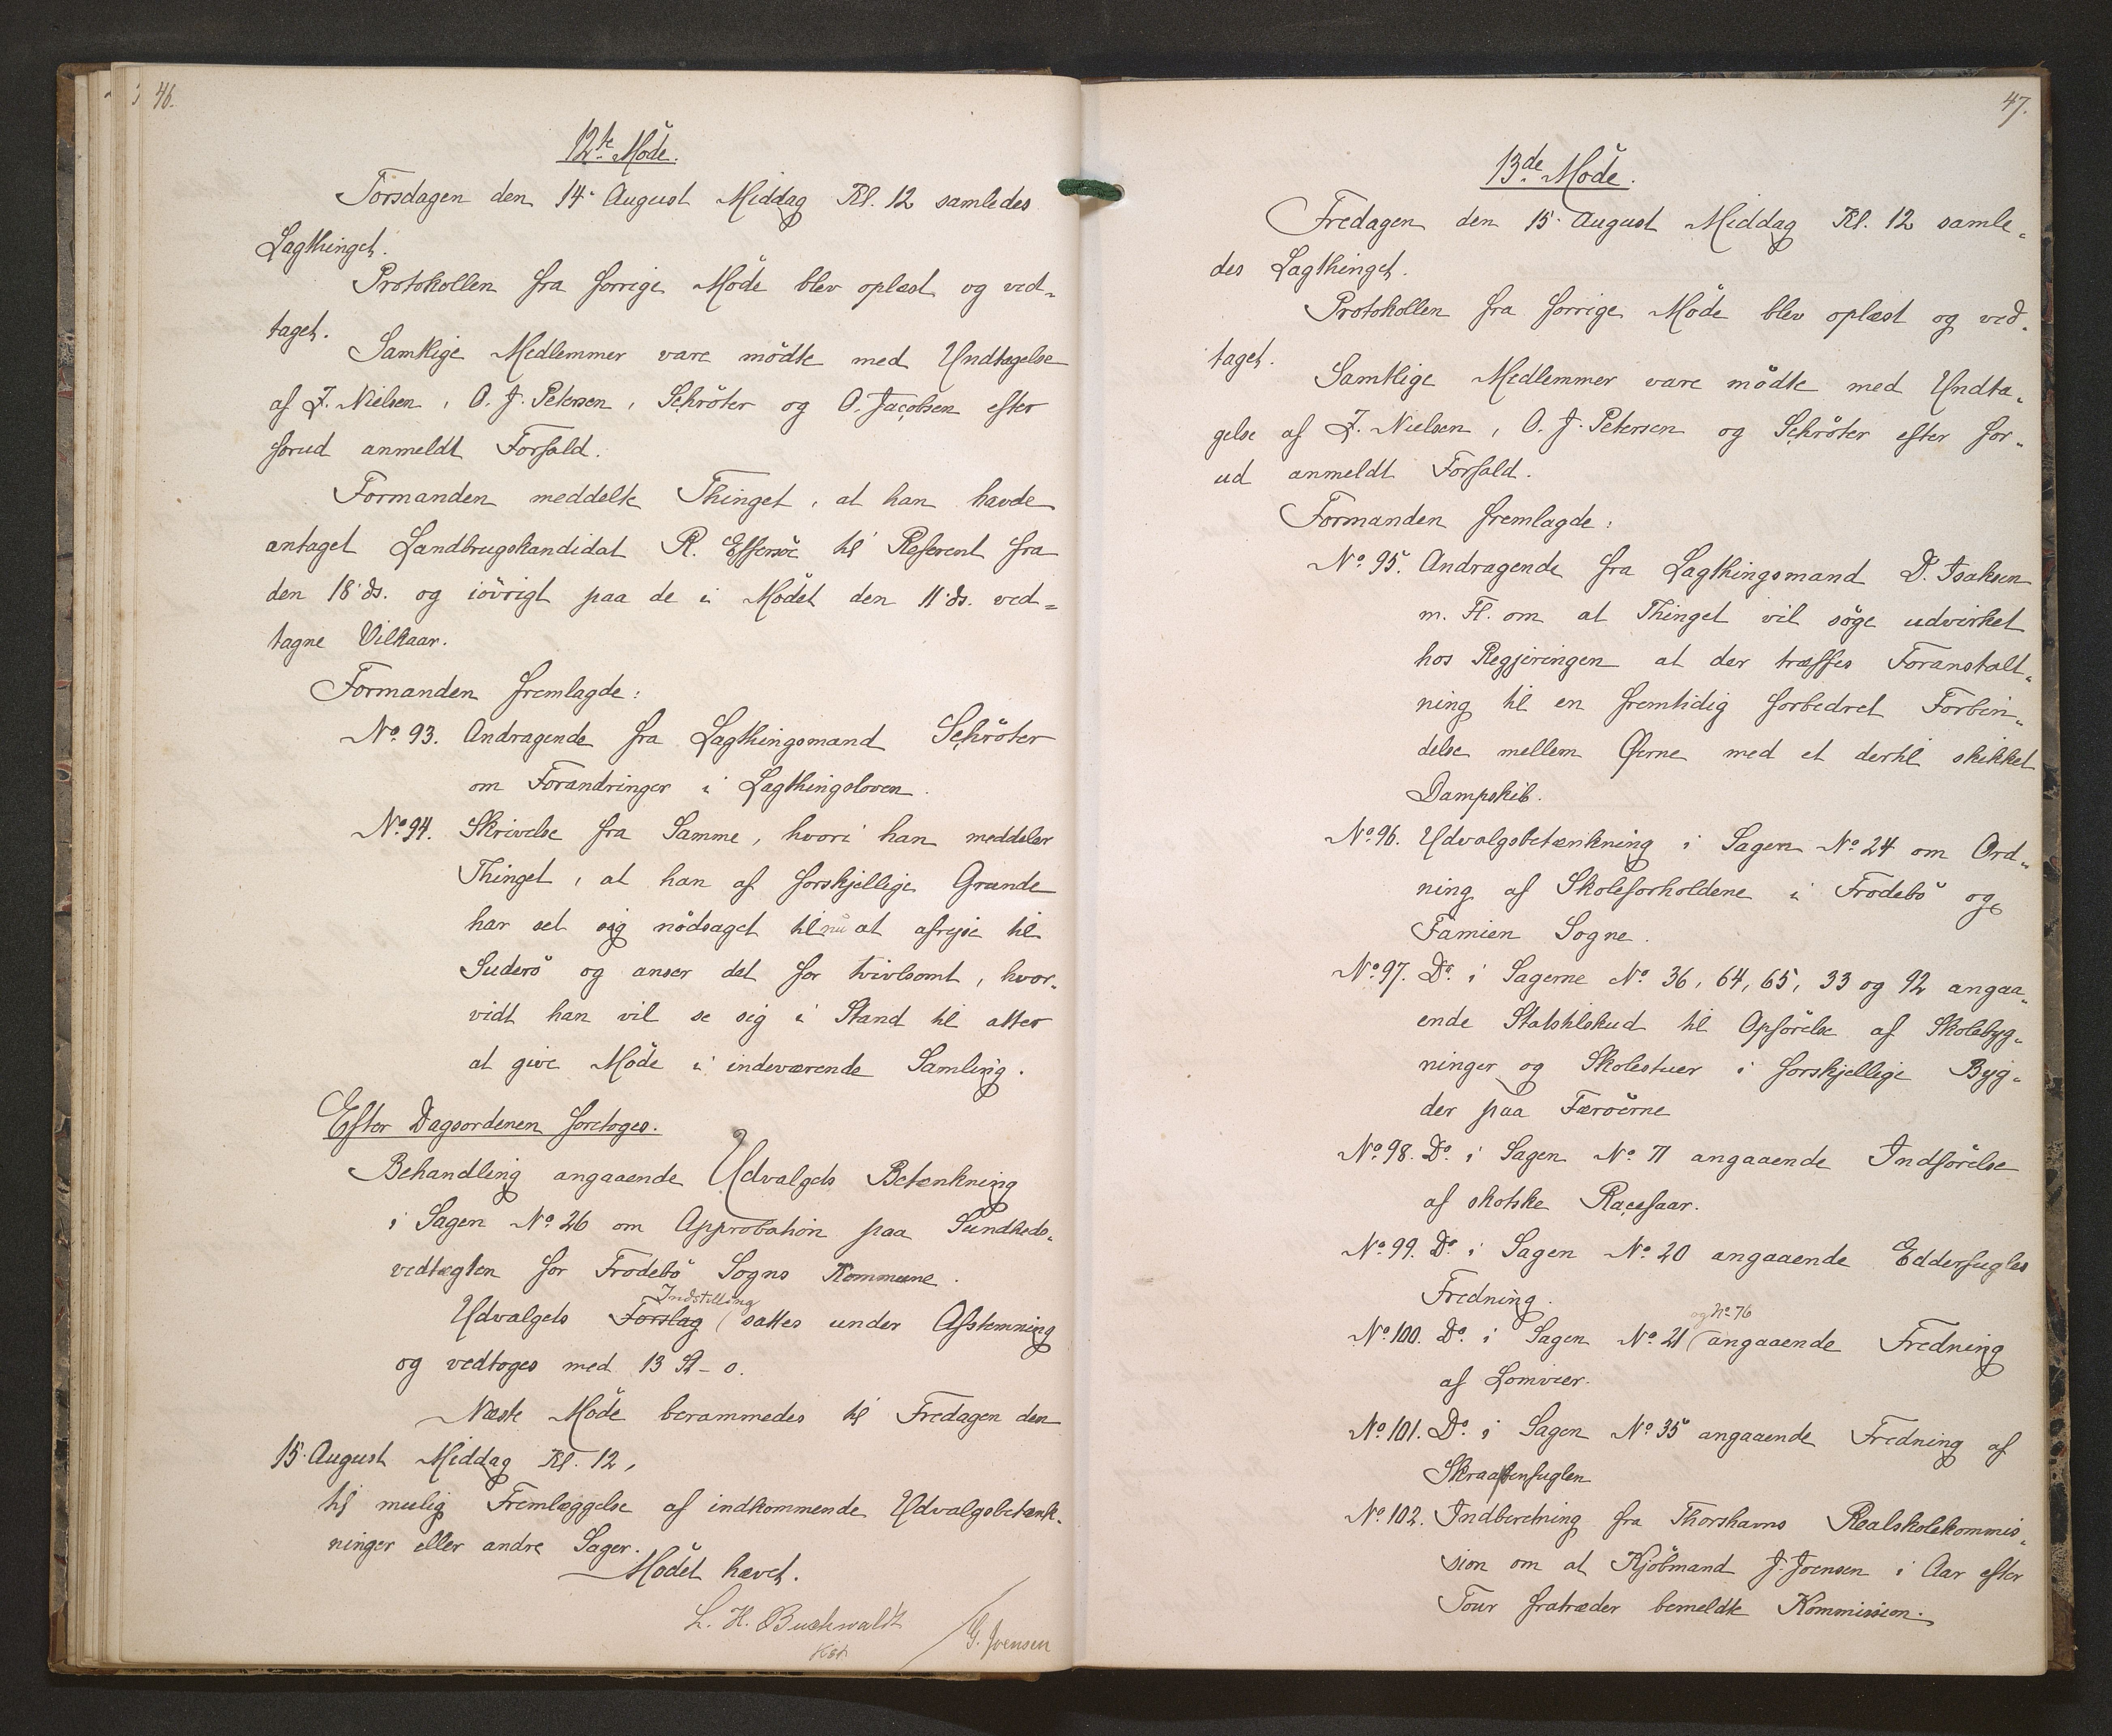 46.
12te Möde.
Torsdagen den 14. August Middag Kl. 12 samledes
Lagthinget.
Protokollen fra forrige Möde blev oplæst og ved-
taget.
Samtlige Medlemmer vare mödte med Undtagelse
af J. Nielsen, O. J. Petersen, Schröter og O. Jacobsen efter
forud anmeldt Forfald.
Formanden meddelte Thinget, at han havde
antaget Landbrugskandidat R. Effersöe til Referent fra
den 18. ds. og iövrigt paa de i Mödet den 11. ds. ved=
tagne Vilkaar.
Formanden fremlagde:
No 93. Andragende fra Lagthingsmand Schröter
om Forandringer i Lagthingsloven.
No 94. Skrivelse fra Samme, hvori han meddeler
Thinget, at han af forskjellige Grunde
har set sig nödsaget til nu at afrejse til
Suderö og anser det for tvivlsomt, hvor-
vidt han vil se sig i Stand til atter
at give Möde i indeværende Samling.
Efter Dagsordenen foretoges.
Behandling angaaende Udvalgets Betænkning
i Sagen No 26 om Approbation paa Sundheds-
vedtægten for Frodebö Sogns Kommune.
Indstilling
Udvalgets Forslag sattes under Afstemning
og vedtoges med 13 St - 0.
Næste Möde berammedes til Fredagen den
15. August Middag Kl. 12,
til mulig Fremlæggelse af indkommende Udvalgsbetænk-
ninger eller andre Sager.
Mödet hævet.
L. H. Buchwaldt
kst.
G. Joensen
47.
13de Möde.
Fredagen den 15. August Middag Kl. 12 samle-
des Lagthinget.
Protokollen fra forrige Möde blev oplæst og ved-
taget.
Samtlige Medlemmer vare mödte med Undta-
gelse af J. Nielsen, O. J. Petersen og Schröter efter for-
ud anmeldt Forfald.
Formanden fremlagde:
No 95. Andragende fra Lagthingsmand D. Isaksen
m. Fl. om at Thinget vil söge udvirket
hos Regjeringen at der træffes Foranstalt-
ning til en fremtidig forbedret Forbin-
delse mellem Öerne med et dertil skikket
Dampskib.
No 96. Udvalgsbetænkning i Sagen No 24 om Ord-
ning af Skoleforholdene i Frodebö og
Famien Sogne.
No 97. Do i Sagerne No 36, 64, 65, 33 og 92 angaa-
ende Statstilskud til Opförelse af Skolebyg-
ninger og Skolestuer i forskjellige Byg-
der paa Færöerne
No 98. Do i Sagen No 71 angaaende Indförelse
af skotske Racefaar.
No 99. Do i Sagen No 20 angaaende Edderfugles
Fredning.
og No 76
No 100. Do i Sagen No 21 angaaende Fredning
af Lomvier.
No 101. Do i Sagen No 35 angaaende Fredning af
Skraapenfuglen
No 102. Indberetning fra Thorshavns Realskolekommis-
sion om at Kjöbmand J. Joensen i Aar efter
Tour fratræder bemeldte Kommission.